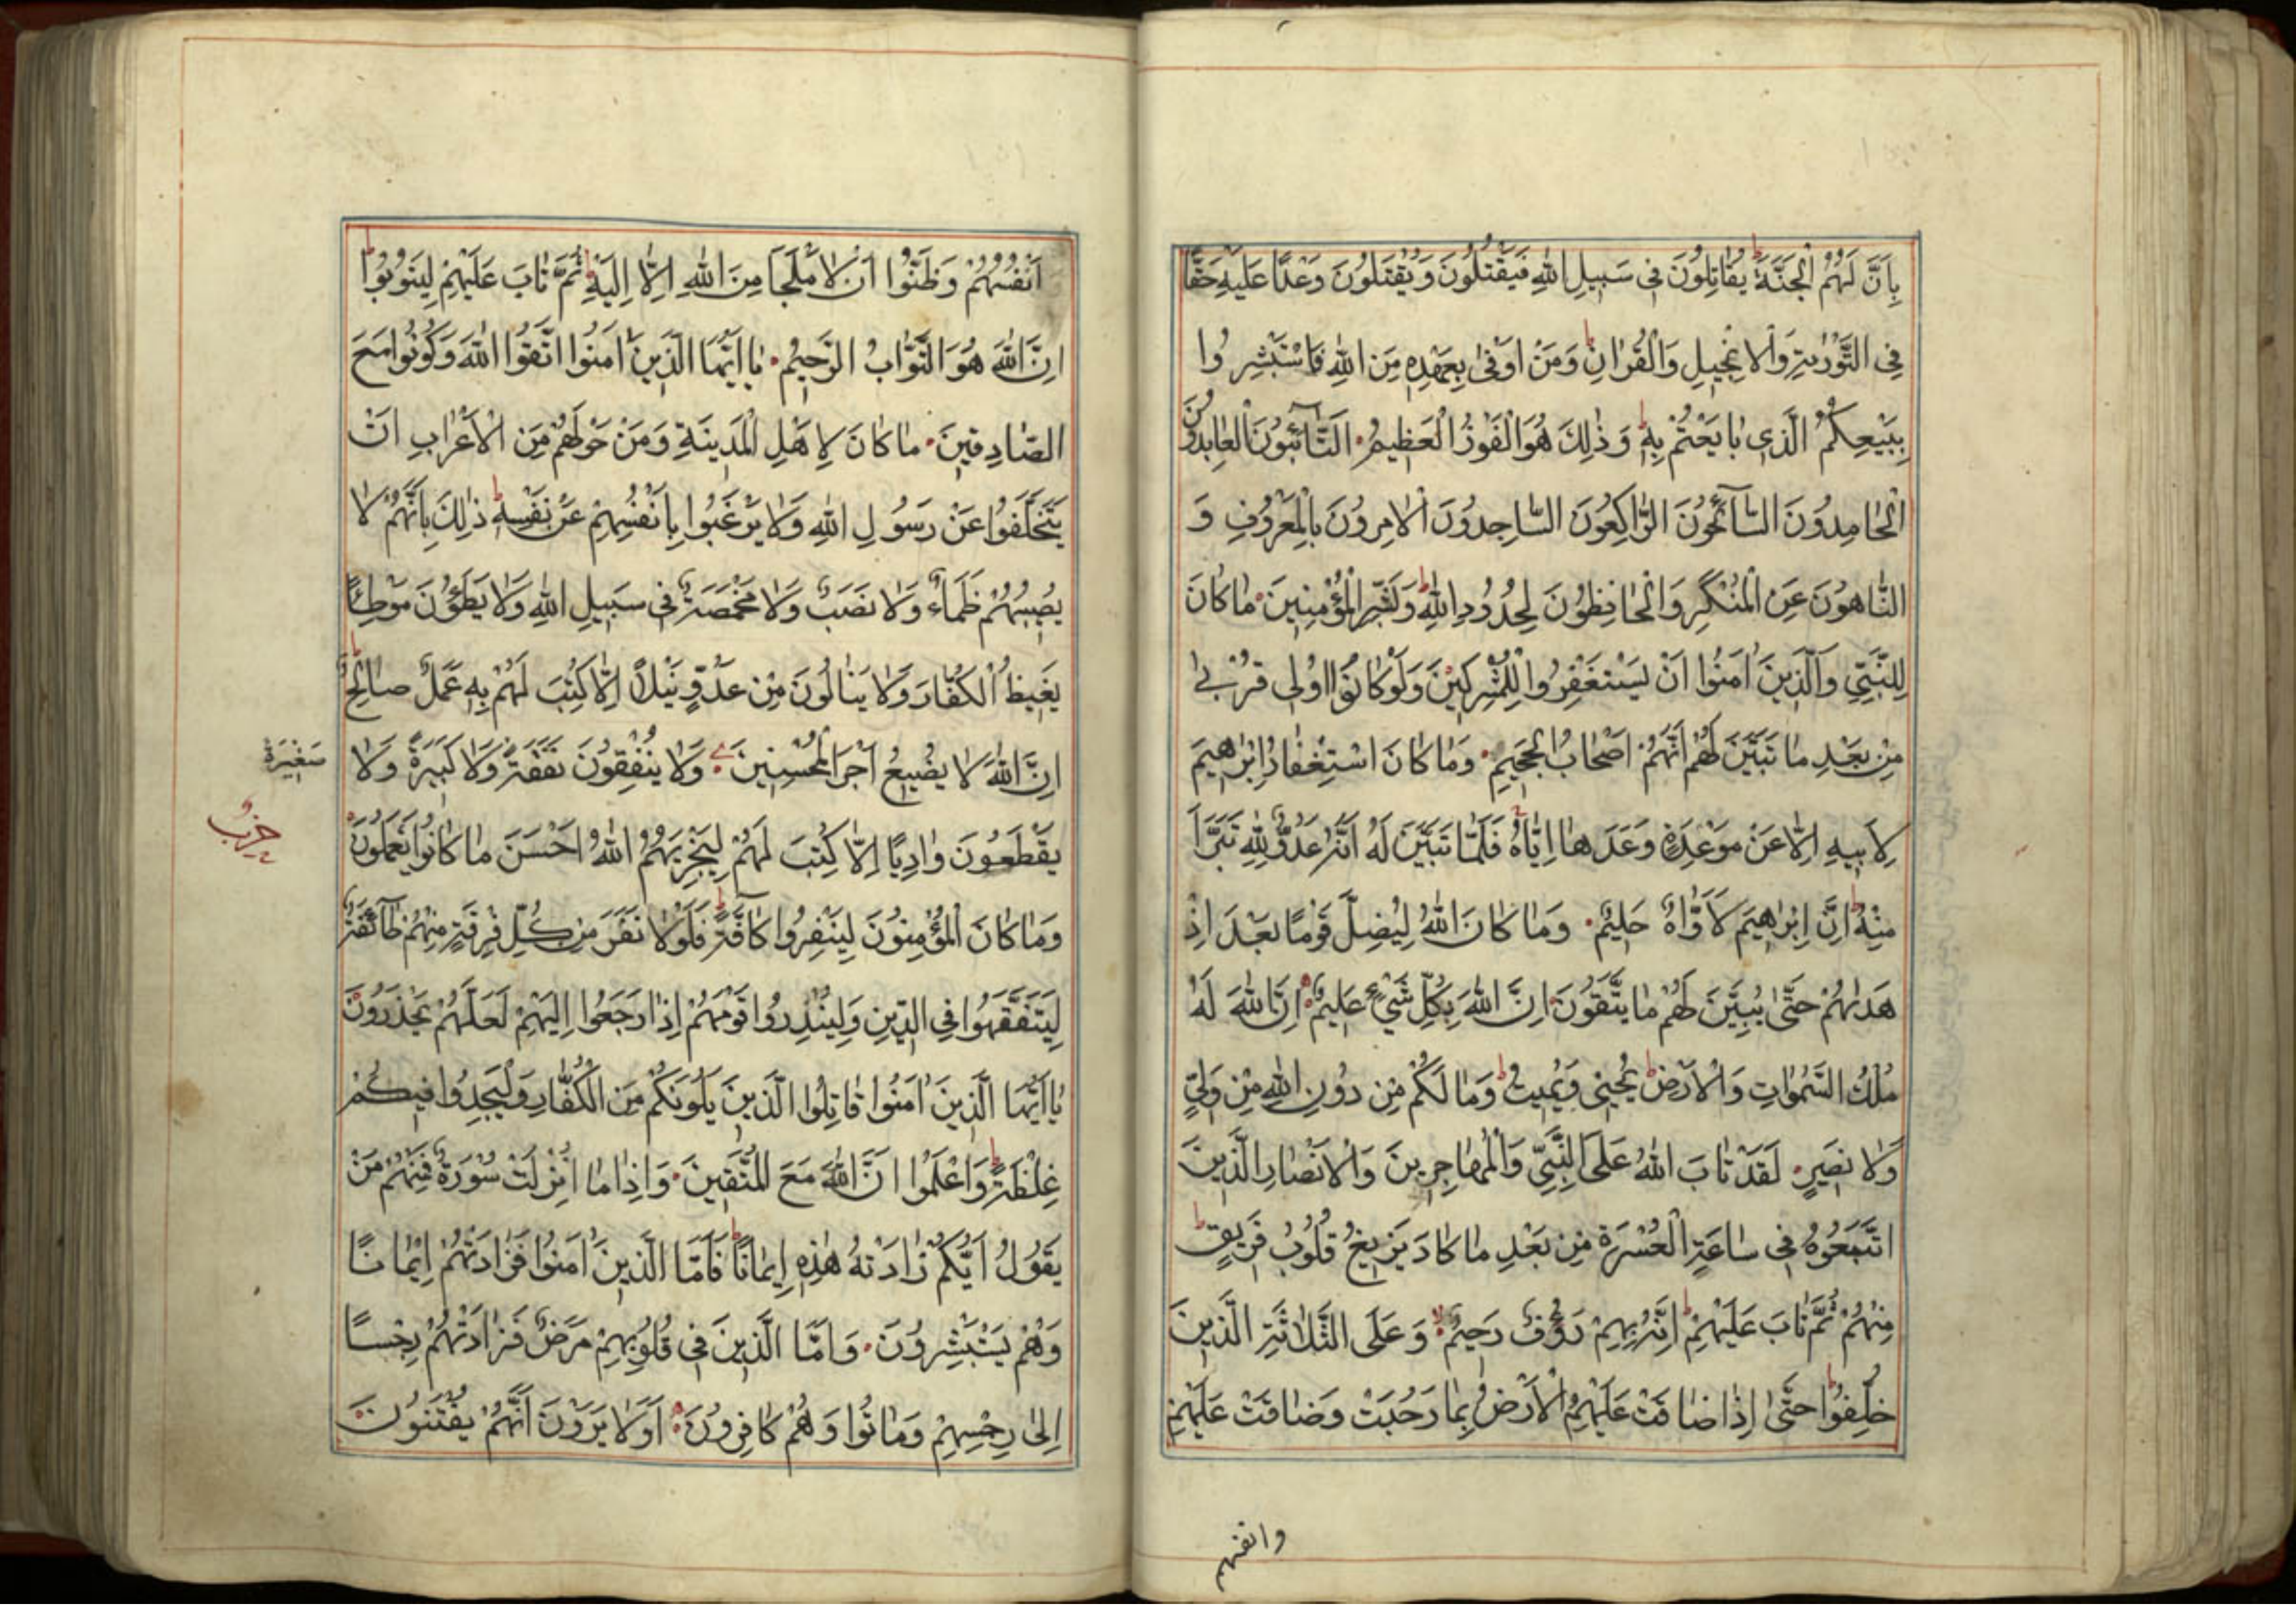 بِاَنَّ لَهُمُ الْجَنَّةَ يُقَاتِلُونَ فِى سَبِيلِ اللهِ فَيَقْتُلُونَ وَيُقْتَلُونَ وَعْدًا عَلَيْهِ حَقًّا
فِى التَّوْرٰيةِ وَالْاِنْجِيلِ وَالْقُرْاٰنِ وَمَنْ اَوْفٰى بِعَهْدِهِ مِنَ اللهِ فَاسْتَبْشِرُوا
بِبَيْعِكُمُ الَّذِى بَايَعْتُمْ بِهِ وَذٰلِكَ هُوَ الْفَوْزُ الْعَظِيمُ التَّآئِبُونَ الْعَابِدُونَ
الْحَامِدُونَ السَّآئِحُونَ الرَّاكِعُونَ السَّاجِدُونَ الْاٰمِرُونَ بِالْمَعْرُوفِ وَ
النَّاهُونَ عَنِ الْمُنْكَرِ وَالْحَافِظُونَ لِحُدُودِ اللهِ وَبَشِّرِ الْمُؤْمِنِينَ مَا كَانَ
لِلنَّبِىِّ وَالَّذِينَ اٰمَنُوا اَنْ يَسْتَغْفِرُوا لِلْمُشْرِكِينَ وَلَوْ كَانُوا اُولِى قُرْبٰى
مِنْ بَعْدِ مَا تَبَيَّنَ لَهُمْ اَنَّهُمْ اَصْحَابُ الْجَحِيمِ وَمَا كَانَ اسْتِغْفَارُ اِبْرٰهِيمَ
لِاَبِيهِ اِلَّا عَنْ مَوْعِدَةٍ وَعَدَهَا اِيَّاهُ فَلَمَّا تَبَيَّنَ لَهُ اَنَّهُ عَدُوٌّ لِلّٰهِ تَبَرَّاَ
مِنْهُ اِنَّ اِبْرٰهِيمَ لَاَوَّاهٌ حَلِيمٌ وَمَا كَانَ اللهُ لِيُضِلَّ قَوْمًا بَعْدَ اِذْ
هَدٰيهُمْ حَتّٰى يُبَيِّنَ لَهُمْ مَا يَتَّقُونَ اِنَّ اللهَ بِكُلِّ شَىْءٍ عَلِيمٌ اِنَّ اللهَ لَهُ
مُلْكُ السَّمٰوَاتِ وَالْاَرْضِ يُحْيِى وَيُمِيتُ وَمَا لَكُمْ مِنْ دُونِ اللهِ مِنْ وَلِىٍّ
وَلَا نَصِيرٍ لَقَدْ تَابَ اللهُ عَلَى النَّبِىِّ وَالْمُهَاجِرِينَ وَالْاَنْصَارِ الَّذِينَ
اتَّبَعُوهُ فِى سَاعَةِ الْعُسْرَةِ مِنْ بَعْدِ مَا كَادَ يَزِيغُ قُلُوبُ فَرِيقٍ
مِنْهُمْ ثُمَّ تَابَ عَلَيْهِمْ اِنَّهُ بِهِمْ رَؤُفٌ رَحِيمٌ وَعَلَى الثَّلٰثَةِ الَّذِينَ
خُلِّفُوا حَتّٰى اِذَا ضَاقَتْ عَلَيْهِمُ الْاَرْضُ بِمَا رَحُبَتْ وَضَاقَتْ عَلَيْهِمْ
وانفسهم
اَنْفُسُهُمْ وَظَنُّوا اَنْ لَا مَلْجَاَ مِنَ اللهِ اِلَّا اِلَيْهِ ثُمَّ تَابَ عَلَيْهِمْ لِيَتُوبُوا
اِنَّ اللهَ هُوَ التَّوَّابُ الرَّحِيمُ يَا اَيُّهَا الَّذِينَ اٰمَنُوا اتَّقُوا اللهَ وَكُونُوا مَعَ
الصَّادِقِينَ مَا كَانَ لِاَهْلِ الْمَدِينَةِ وَمَنْ حَوْلَهُمْ مِنَ الْاَعْرَابِ اَنْ
يَتَخَلَّفُوا عَنْ رَسُولِ اللهِ وَلَا يَرْغَبُوا بِاَنْفُسِهِمْ عَنْ نَفْسِهِ ذٰلِكَ بِاَنَّهُمْ لَا
يُصِيبُهُمْ ظَمَاءٌ وَلَا نَصَبٌ وَلَا مَخْمَصَةٌ فِى سَبِيلِ اللهِ وَلَا يَطَؤُنَ مَوْطِئًا
يَغِيظُ الْكُفَّارَ وَلَا يَنَالُونَ مِنْ عَدُوٍّ نَيْلًا اِلَّا كُتِبَ لَهُمْ بِهِ عَمَلٌ صَالِحٌ
اِنَّ اللهَ لَا يُضِيعُ اَجْرَ الْمُحْسِنِينَ وَلَا يُنْفِقُونَ نَفَقَةً وَلَا كَبِيرَةً وَلَا
صَغِيرَةً
حزب
يَقْطَعُونَ وَادِيًا اِلَّا كُتِبَ لَهُمْ لِيَجْزِيَهُمُ اللهُ اَحْسَنَ مَا كَانُوا يَعْمَلُونَ
وَمَا كَانَ الْمُؤْمِنُونَ لِيَنْفِرُوا كَآفَّةً فَلَوْلَا نَفَرَ مِنْ كُلِّ فِرْقَةٍ مِنْهُمْ طَآئِفَةٌ
لِيَتَفَقَّهُوا فِى الدِّينِ وَلِيُنْذِرُوا قَوْمَهُمْ اِذَا رَجَعُوا اِلَيْهِمْ لَعَلَّهُمْ يَحْذَرُونَ
يَا اَيُّهَا الَّذِينَ اٰمَنُوا قَاتِلُوا الَّذِينَ يَلُونَكُمْ مِنَ الْكُفَّارِ وَلْيَجِدُوا فِيكُمْ
غِلْظَةً وَاعْلَمُوا اَنَّ اللهَ مَعَ الْمُتَّقِينَ وَاِذَا مَا اُنْزِلَتْ سُورَةٌ فَمِنْهُمْ مَنْ
يَقُولُ اَيُّكُمْ زَادَتْهُ هٰذِهِ اِيمَانًا فَاَمَّا الَّذِينَ اٰمَنُوا فَزَادَتْهُمْ اِيمَانًا
وَهُمْ يَسْتَبْشِرُونَ وَاَمَّا الَّذِينَ فِى قُلُوبِهِمْ مَرَضٌ فَزَادَتْهُمْ رِجْسًا
اِلٰى رِجْسِهِمْ وَمَاتُوا وَهُمْ كَافِرُونَ اَوَلَا يَرَوْنَ اَنَّهُمْ يُفْتَنُونَ